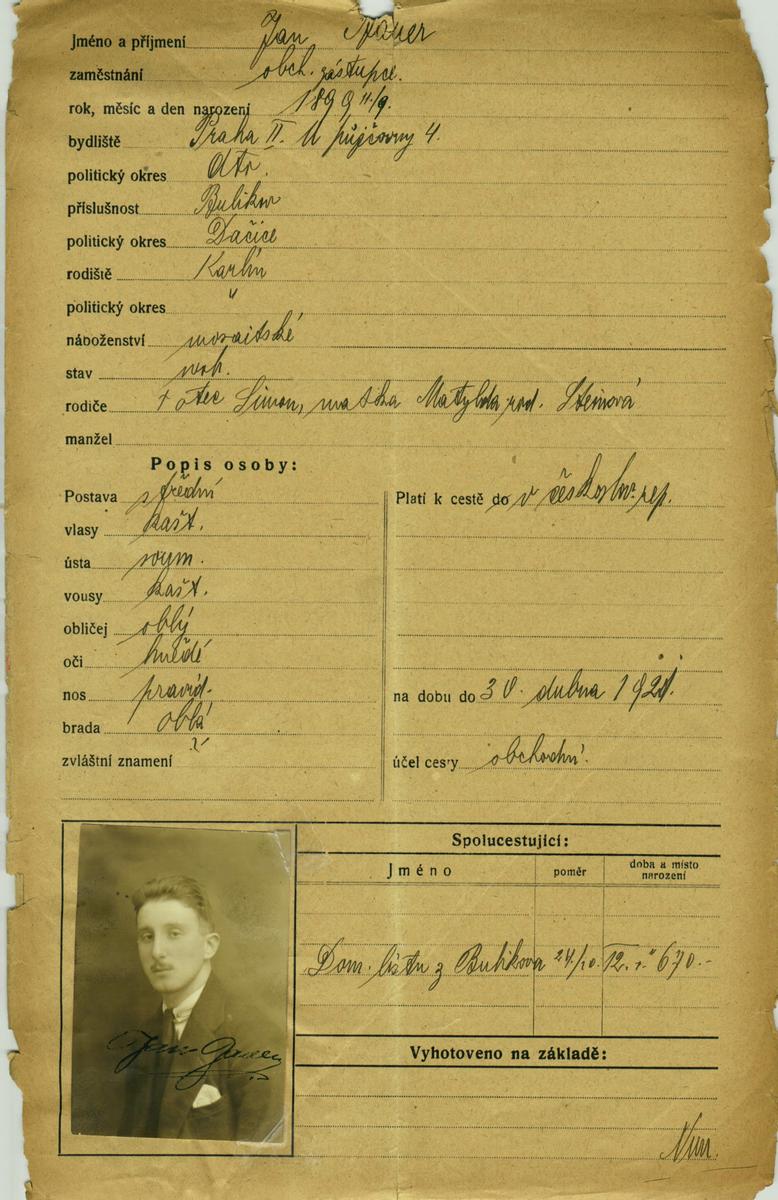 Jméno a příjmení Jan
zaměstnání obch. zástupce.
rok, měsíc a den narození 1899 11/9.
bydliště Praha II. U půjčovny 4.
politický okres dto.
příslušnost Bulikov
politický okres Dačice
rodiště Karlín
politický okres "
náboženství mosaitské
stav svob.
rodiče † otec Simon, matka Matylda roz. Steinová
manžel
Popis osoby:
Postava střední
vlasy kašt.
ústa soum.
vousy kašt.
obličej oblý
oči hnědé
nos pravid.
brada oblá
zvláštní znamení
Platí k cestě do v českoslov. rep.
na dobu do 30. dubna
účel cesty obchodní.
Spolucestující:
Jméno poměr doba a místo narození
Dom. listu z Bulikova 24./10.
Vyhotoveno na základě: